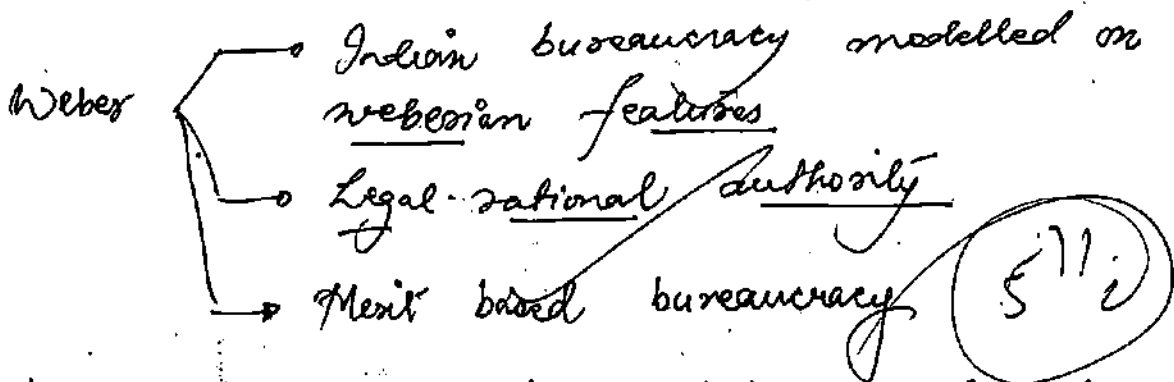 Weber → Indian bureaucracy modelled on
weberian features
→ Legal-rational authority
→ Merit based bureaucracy